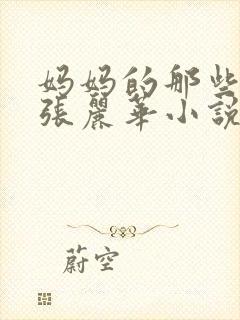 妈妈的那些
張麗華小説
蔚空